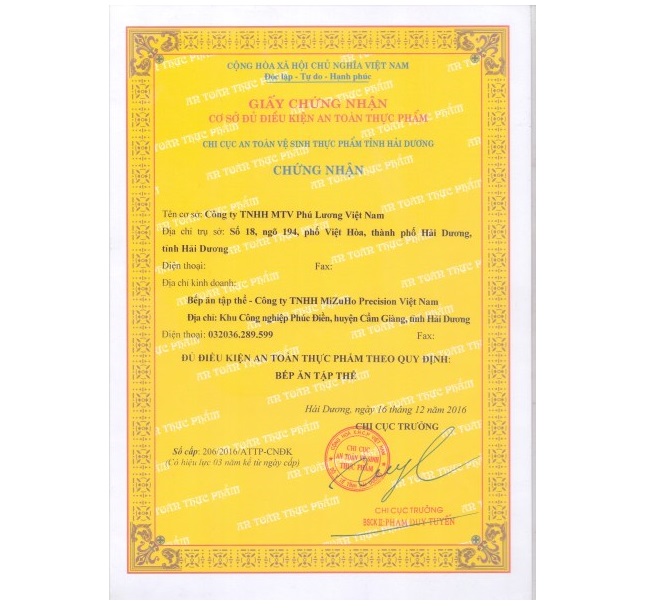 CỘNG HÒA XÃ HỘI CHỦ NGHĨA VIỆT NAM
Độc lập - Tự do - Hạnh phúc
GIẤY CHỨNG NHẬN
CƠ SỞ ĐỦ ĐIỀU KIỆN AN TOÀN THỰC PHẨM
CHI CỤC AN TOÀN VỆ SINH THỰC PHẨM TỈNH HẢI DƯƠNG
CHỨNG NHẬN
Tên cơ sở: Công ty TNHH MTV Phú Lương Việt Nam
Địa chỉ trụ sở: Số 18, ngõ 194, phố Việt Hòa, thành phố Hải Dương,
tỉnh Hải Dương
Điện thoại: Fax:
Địa chỉ kinh doanh:
Bếp ăn tập thể - Công ty TNHH MiZuHo Precision Việt Nam
Địa chỉ: Khu Công nghiệp Phúc Điền, huyện Cẩm Giàng, tỉnh Hải Dương
Điện thoại: 032036.289.599 Fax:
ĐỦ ĐIỀU KIỆN AN TOÀN THỰC PHẨM THEO QUY ĐỊNH:
BẾP ĂN TẬP THỂ
Hải Dương, ngày 16 tháng 12 năm 2016
CHI CỤC TRƯỞNG
Số cấp: 206/2016/ATTP-CNĐK
(Có hiệu lực 03 năm kể từ ngày cấp)
CHI CỤC
AN TOÀN VỆ SINH
THỰC PHẨM
CHI CỤC TRƯỞNG
BSCKII: PHẠM DUY TUYẾN